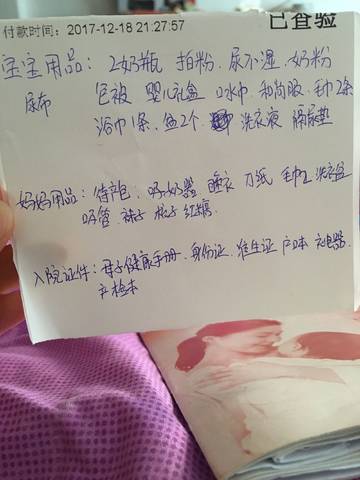 付款时间：2017-12-18 21:27:57 已查验
宝宝用品：2奶瓶 拍粉、尿不湿、奶粉
尿布 包被 婴儿礼盒 口水巾 和尚服、毛巾2条
浴巾1条、盆2个、洗衣液 隔尿垫
妈妈用品：待产包、吸奶器 睡衣 刀纸 毛巾2 洗衣盆
吸管、袜子 梳子 红糖
入院证件：母子健康手册、身份证、准生证 户口本
产检本